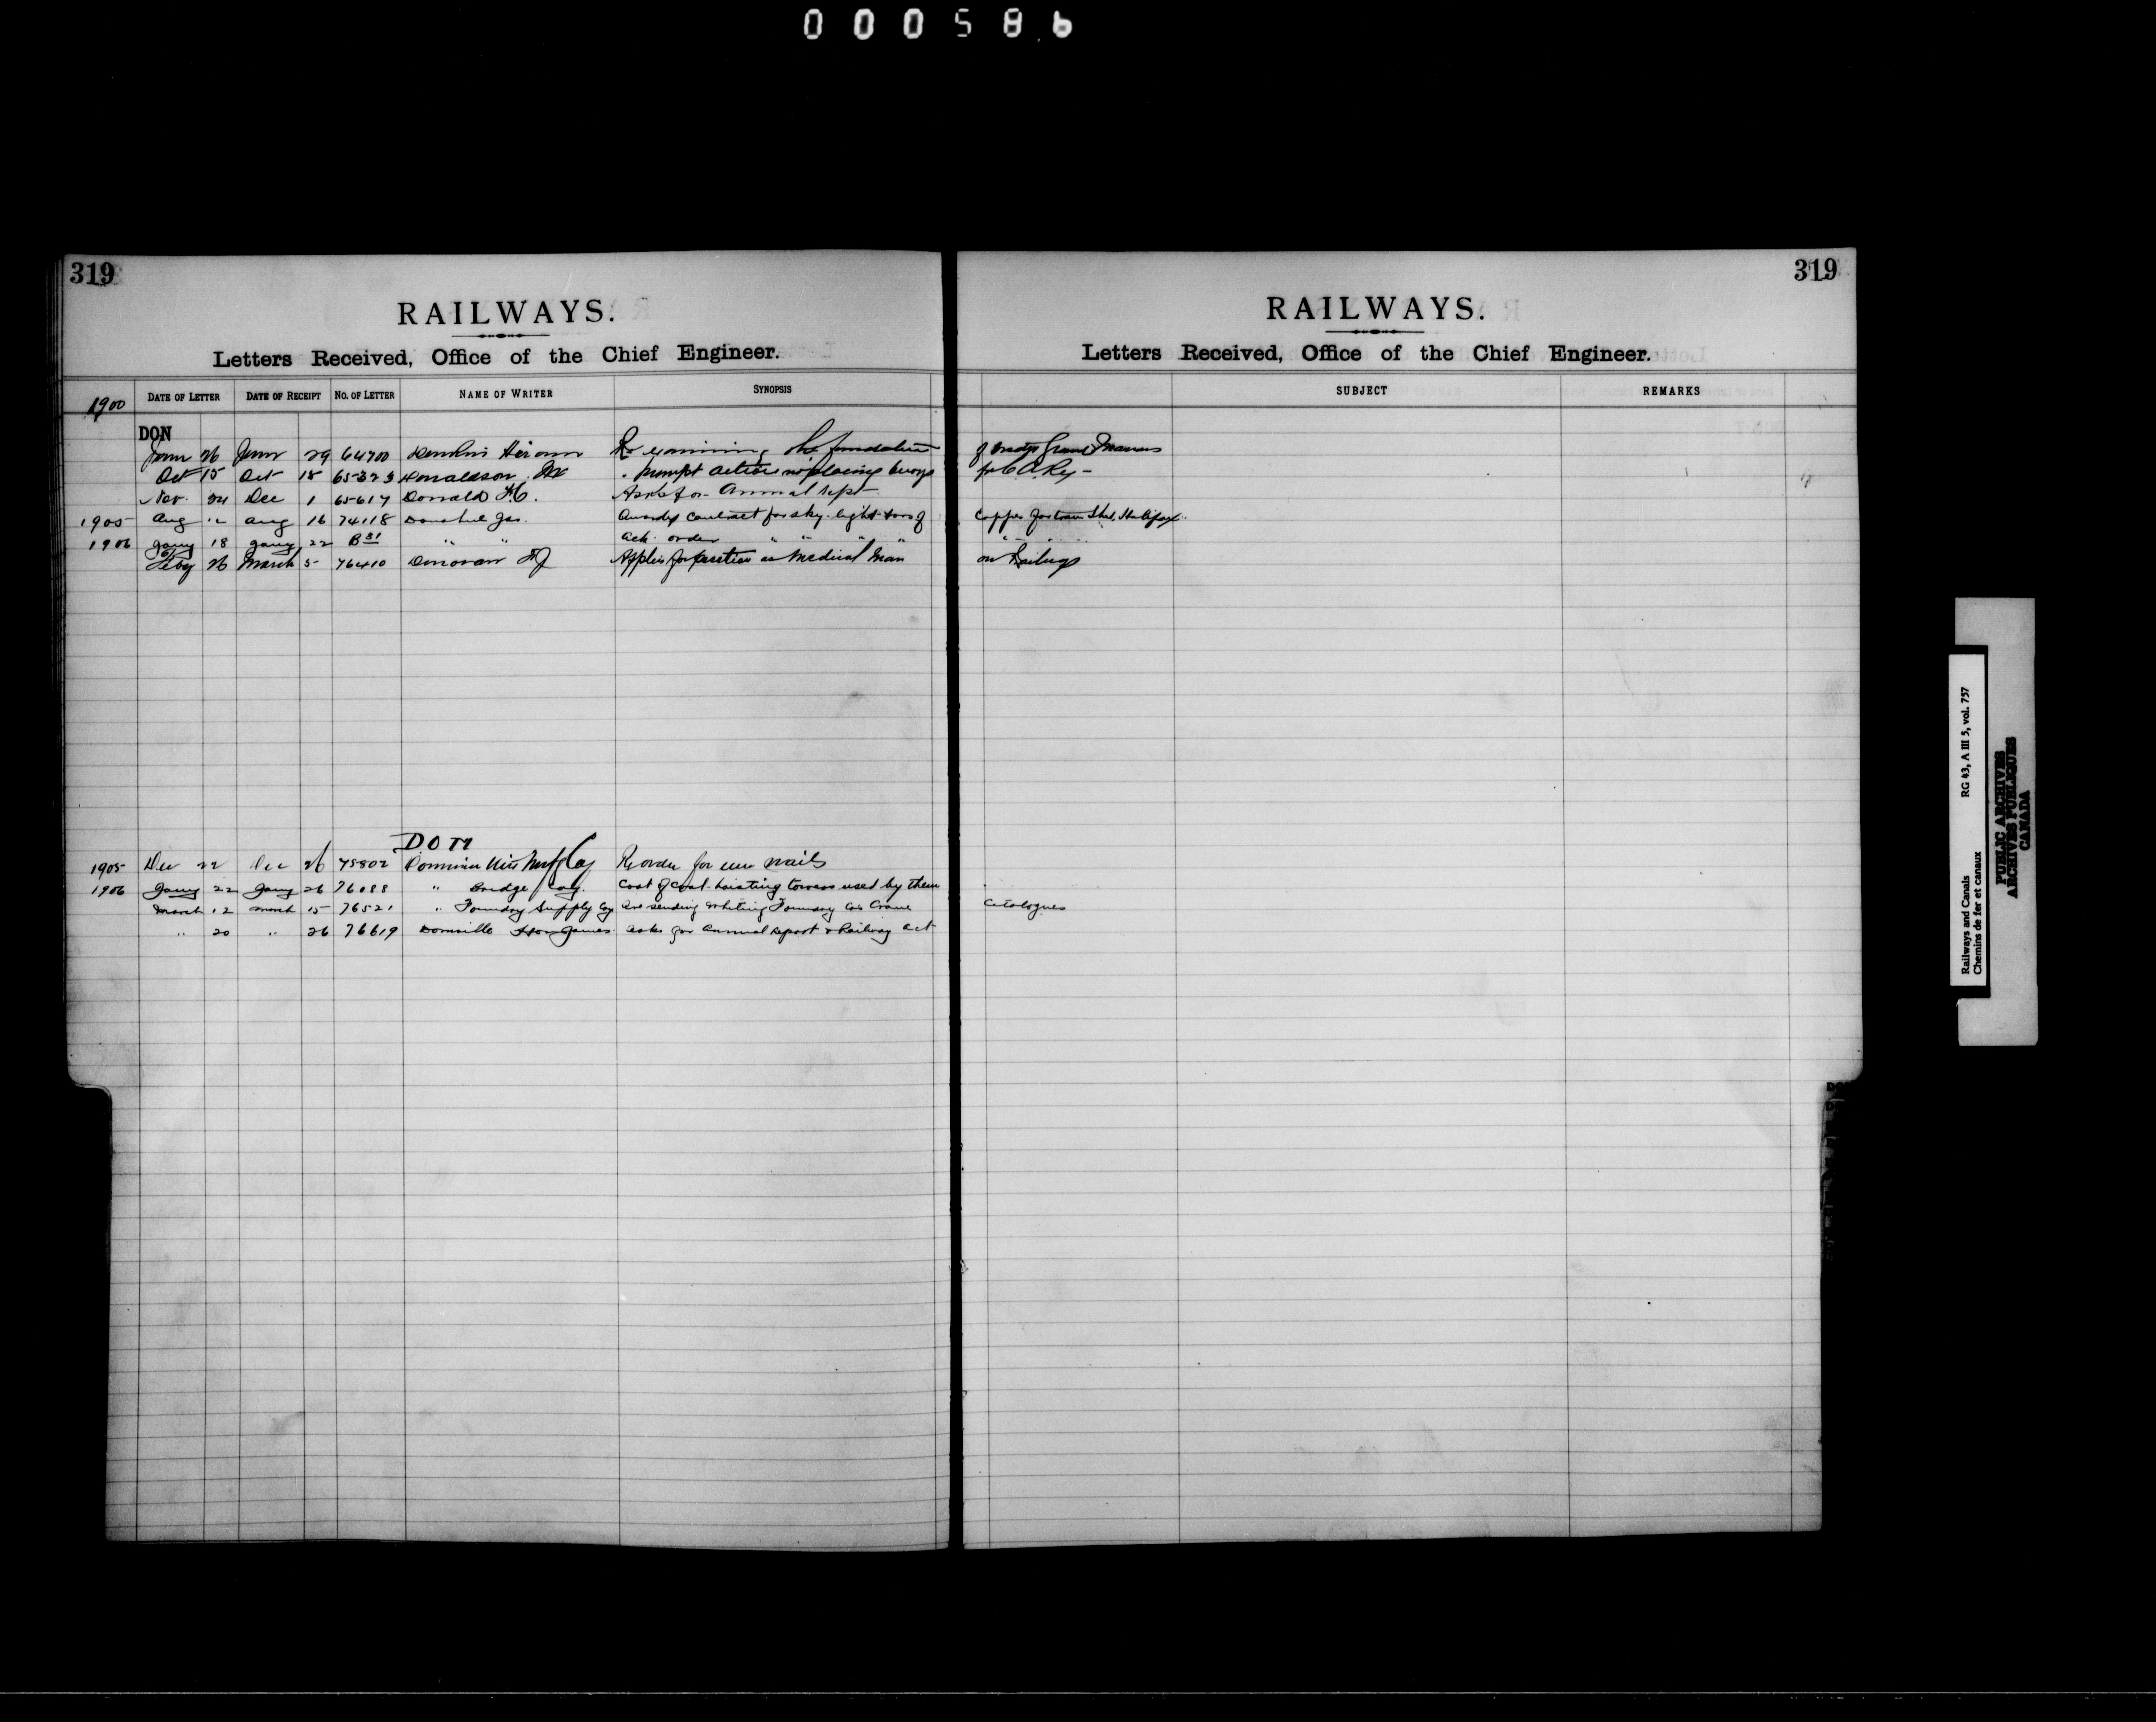 000586
319
RAILWAYS.
Letters Received, Office of the Chief Engineer.
1900 DATE OF LETTER DATE OF RECEIPT NO. OF LETTER NAME OF WRITER SYNOPSIS
DON
26 29 64700 Re examining the foundation
Oct 15 Oct 18 65323 Donaldson prompt action placing buoys
Nov. 24 Dec 1 65617 Donald Asks for Annual rept
1905 Aug 12 Aug 16 74118 Donohue Jas. contract for sky-light
1906 Jany 18 Jany 22 B81 " " Ack. order " " " "
Feby 26 March 5 76410 Donovan Applies for position as Medical Man
DOM
1905 Dec 22 Dec 26 75802 Dominion Wire Mnfg Coy Re order for wire nails
1906 Jany 22 Jany 26 76088 " Bridge Coy. Cost of coal-hoisting towers used by them
March 12 March 15 76521 " Foundry Supply Coy Are sending Whiting Foundry Co's Crane
" 20 " 26 76619 Domville Hon James Asks for Annual Report & Railway Act
319
RAILWAYS.
Letters Received, Office of the Chief Engineer.
SUBJECT REMARKS
of Grand Manan
for C.A. Ry -
Copper for train shed, Halifax.
on Railways
Catalogues
Railways and Canals RG 43, A III 5, vol. 757
Chemins de fer et canaux
PUBLIC ARCHIVES
ARCHIVES PUBLIQUES
CANADA